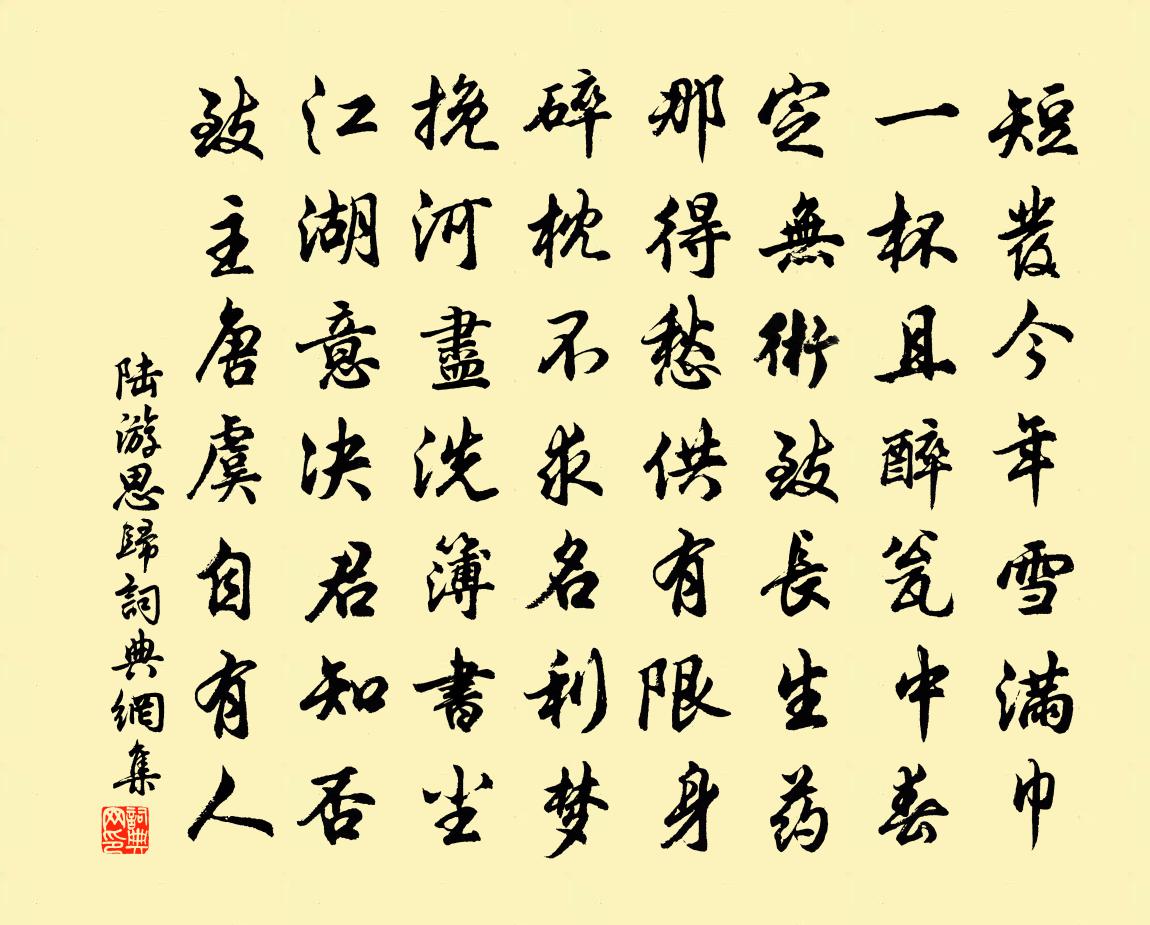 短發今年雪滿巾
一杯且醉瓮中春
定無術致長生药
那得愁供有限身
碎枕不求名利梦
挽河盡洗簿書尘
江湖意决君知否
致主唐虞自有人
陆游思歸詞典網集
詞典网印